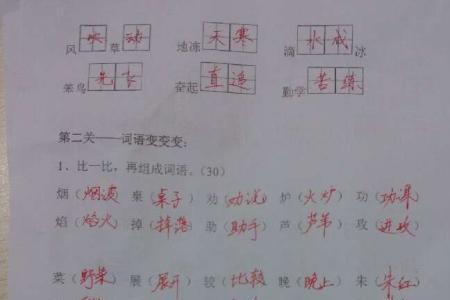 风吹草动 地冻天寒 滴水成冰
笨鸟先飞 奋起直追 勤学苦练
第二关——词语变变变：
1、比一比，再组成词语。（30）
烟（烟波） 桌（桌子） 劝（劝说） 炉（火炉） 功（功课）
焰（焰火） 掉（掉落） 助（助手） 芦（芦苇） 攻（进攻）
菜（野菜） 展（展开） 较（比较） 晚（晚上） 朱（朱红）